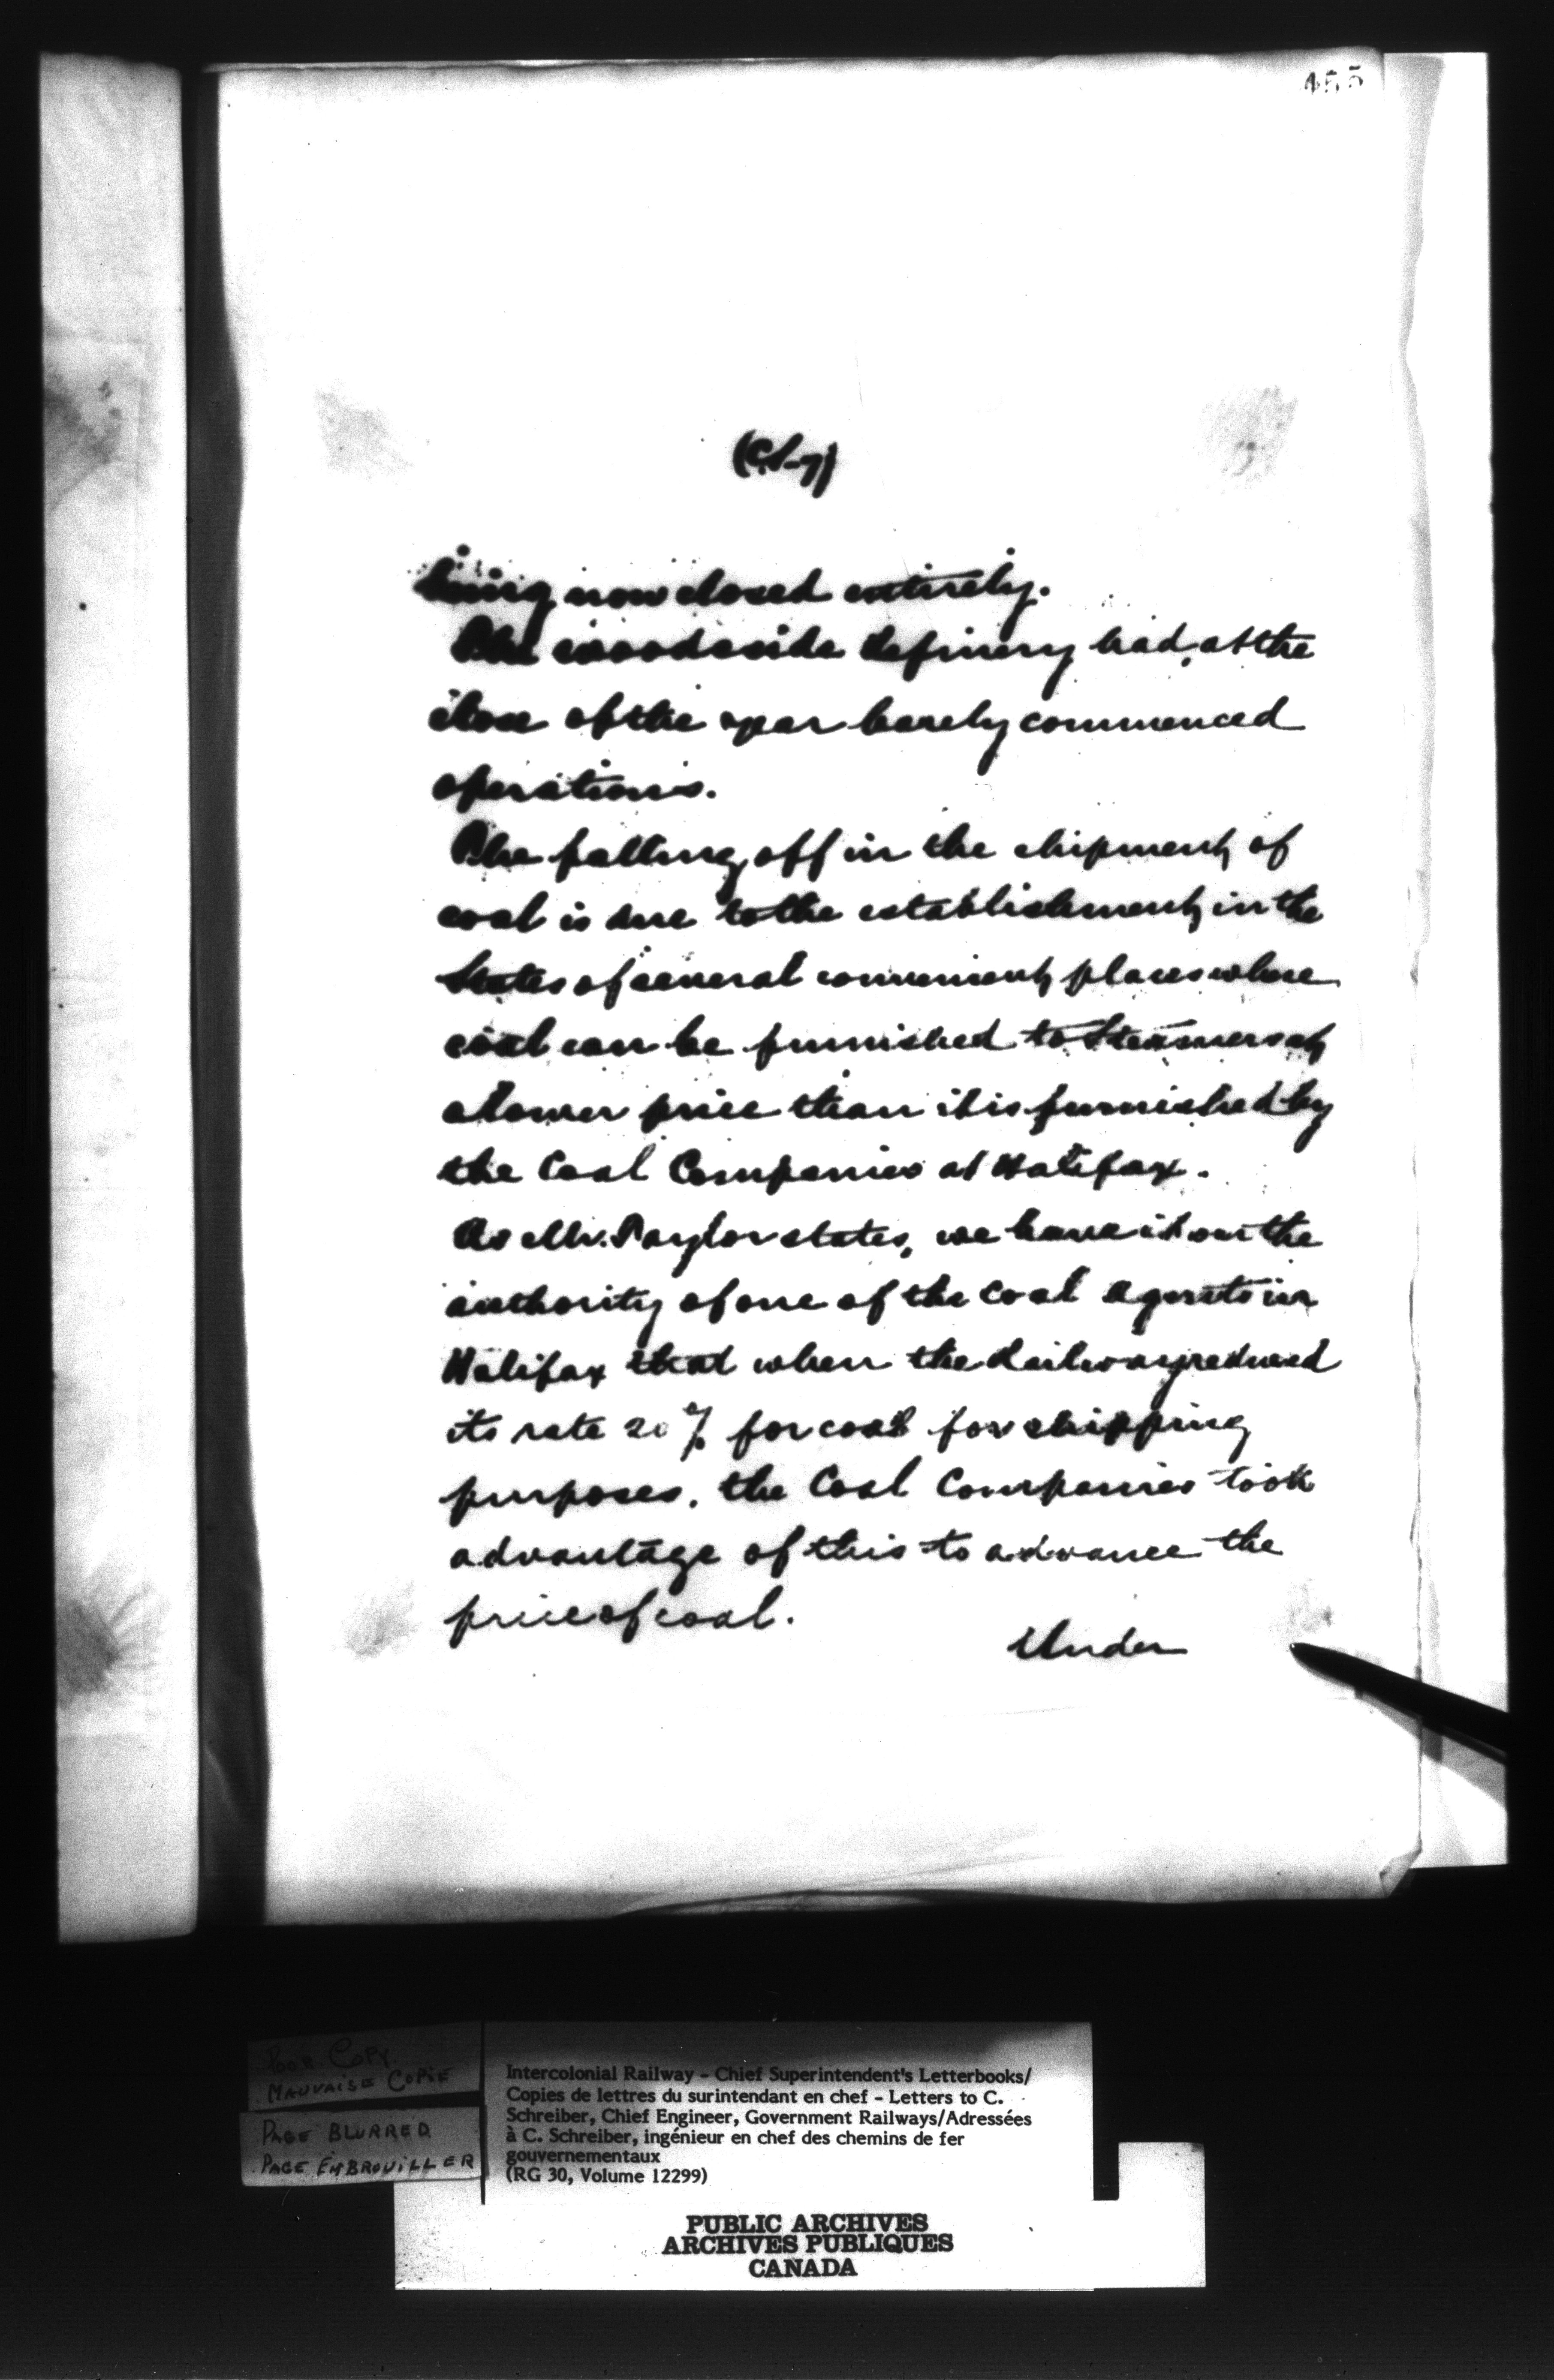 455
being now closed entirely.
The Woodside Refinery had, at the
close of the year barely commenced
operations.
The falling off in the shipment of
coal is due to the establishment in the
States of several convenient places where
coal can be furnished to Steamers at
a lower price than it is furnished by
the Coal Companies at Halifax.
As Mr. Taylor states, we have it on the
authority of one of the Coal Agents in
Halifax that when the Railway reduced
its rate 20% for coal for shipping
purposes, the Coal Companies took
advantage of this to advance the
price of coal.
Under
POOR COPY
MAUVAISE COPIE
PAGE BLURRED
PAGE EMBROUILLER
Intercolonial Railway - Chief Superintendent's Letterbooks/
Copies de lettres du surintendant en chef - Letters to C.
Schreiber, Chief Engineer, Government Railways/Adressées
à C. Schreiber, ingénieur en chef des chemins de fer
gouvernementaux
(RG 30, Volume 12299)
PUBLIC ARCHIVES
ARCHIVES PUBLIQUES
CANADA